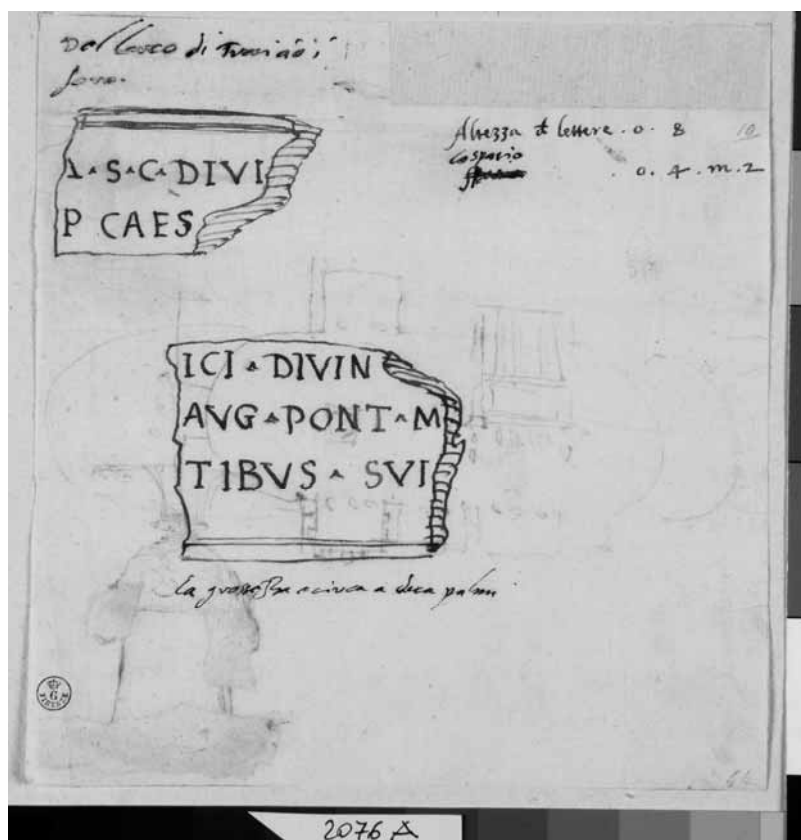 Del Arco di Traiano i
foro.
Altezza de lettere . o . 8
10
Lo spatio
. o . 4 . m . 2
A · S · C · DIVI
P CAES
ICI · DIVIN
AVG · PONT · M
TIBVS · SVI
La grossezza e circa a deca palmi
G
2076 A